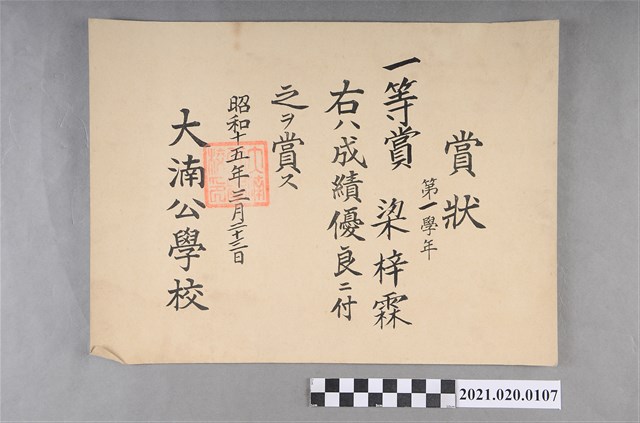 賞狀
第一學年
一等賞 梁梓霖
右ハ成績優良ニ付
之ヲ賞ス
昭和十五年三月二十三日
大湳公學校
2021.020.0107